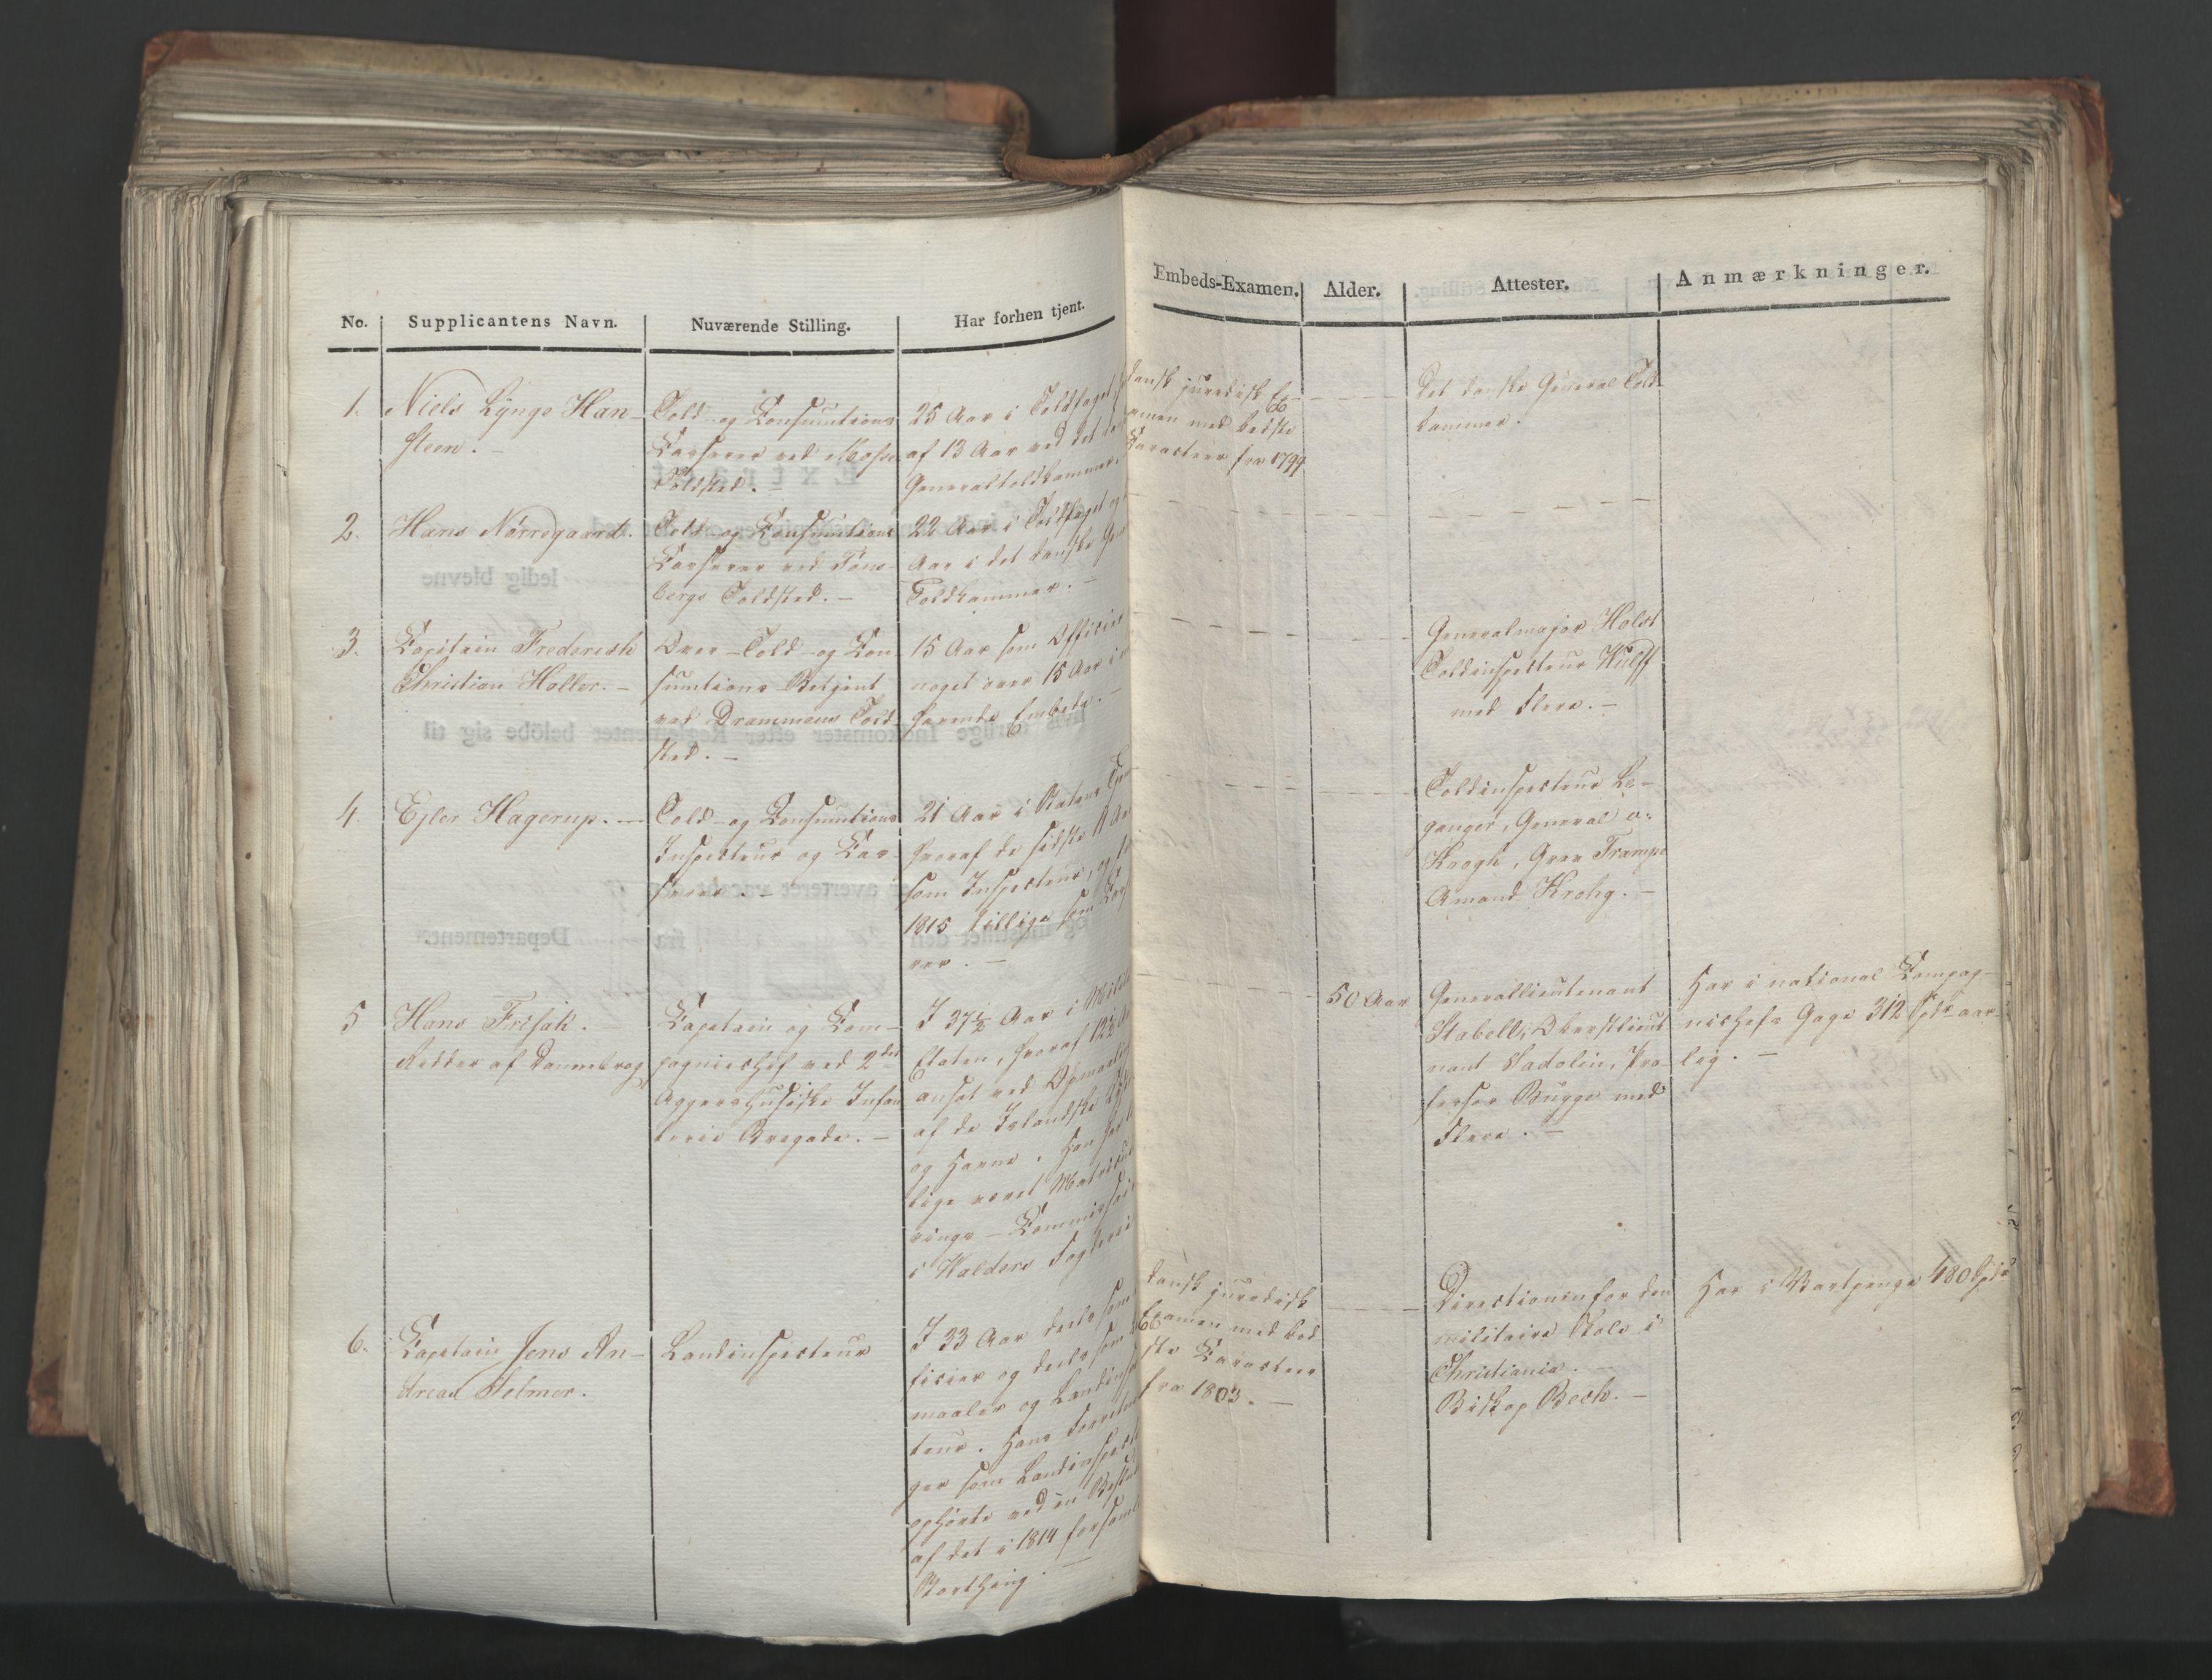 No.
Supplicantens Navn.
Nuværende Stilling.
Har forhen tjent.
Embeds-Examen.
Alder.
Attester.
Anmærkninger.
1.
Niels Lynge Han-
steen.
Told- og Consumtions
Casserer ved Mosse
Toldsted. -
25 Aar i Toldfaget,
af 13 Aar ved det
Generaltoldkammer.
Dansk juridisk Ex-
amen med bedste
Caracteer fra 1799
Det danske General Told-
kammer.
2.
Hans Nörregaard.
Told- og Consumtions
Casserer ved Töns-
bergs Toldsted. -
22 Aar i Toldfaget og
Aar i det danske
Toldkammer. -
3.
Capitain Frederich
Christian Holler. -
Over-Told-og Con
sumtions-Betjent
ved Drammens Told-
sted. -
15 Aar som Officier
noget over 15 Aar i
havende Embede. -
Generalmajor Holst
Toldinspecteur Wülff
med Flere. -
4.
Ejler Hagerup. -
Told-og Consumtions
Inspecteur og Cas-
serer. -
21 Aar i Statens
hvoraf de sidste 11
som Inspecteur, og
1815 tillige som
rer. -
Toldinspecteur Le-
ganger, General v:
Krogh, Grev Trampe
Amtmand Krohg. -
5
Hans Frisak.
Ridder af Dannebrog
Capitain og Com-
pagniechef ved 2den
Aggershusiske Infan
terie Brigade. -
I 37½ Aar i
Etaten, hvoraf 12½
ansat ved Opmaaling
af de Islandske
og Havne. Han har
lige været
rings-Commissair
i Walders Fogderi
50 Aar
Generallieutenant
Stabell, Oberstlieut
nant Sadolin, Pro
fessor Bugge med
Flere. -
Har i national Compag-
niechefs Gage 312 Spdr aar-
lig. -
6.
Capitain Jens An-
dreas Selmer.
Landinspecteur
I 33 Aar deels som
ficier og deels som
maaler og Landinspec
teur. Hans Forretnin
ger som Landinspect
ophörte ved en
af det i 1814 forsaml
Storthing. -
Dansk juridisk
Examen med bed
ste Caracteer
fra 1803. -
Directionen for den
militaire Skole i
Christiania. -
Biskop Bech. -
Har i Vartpenge 480 Spdr